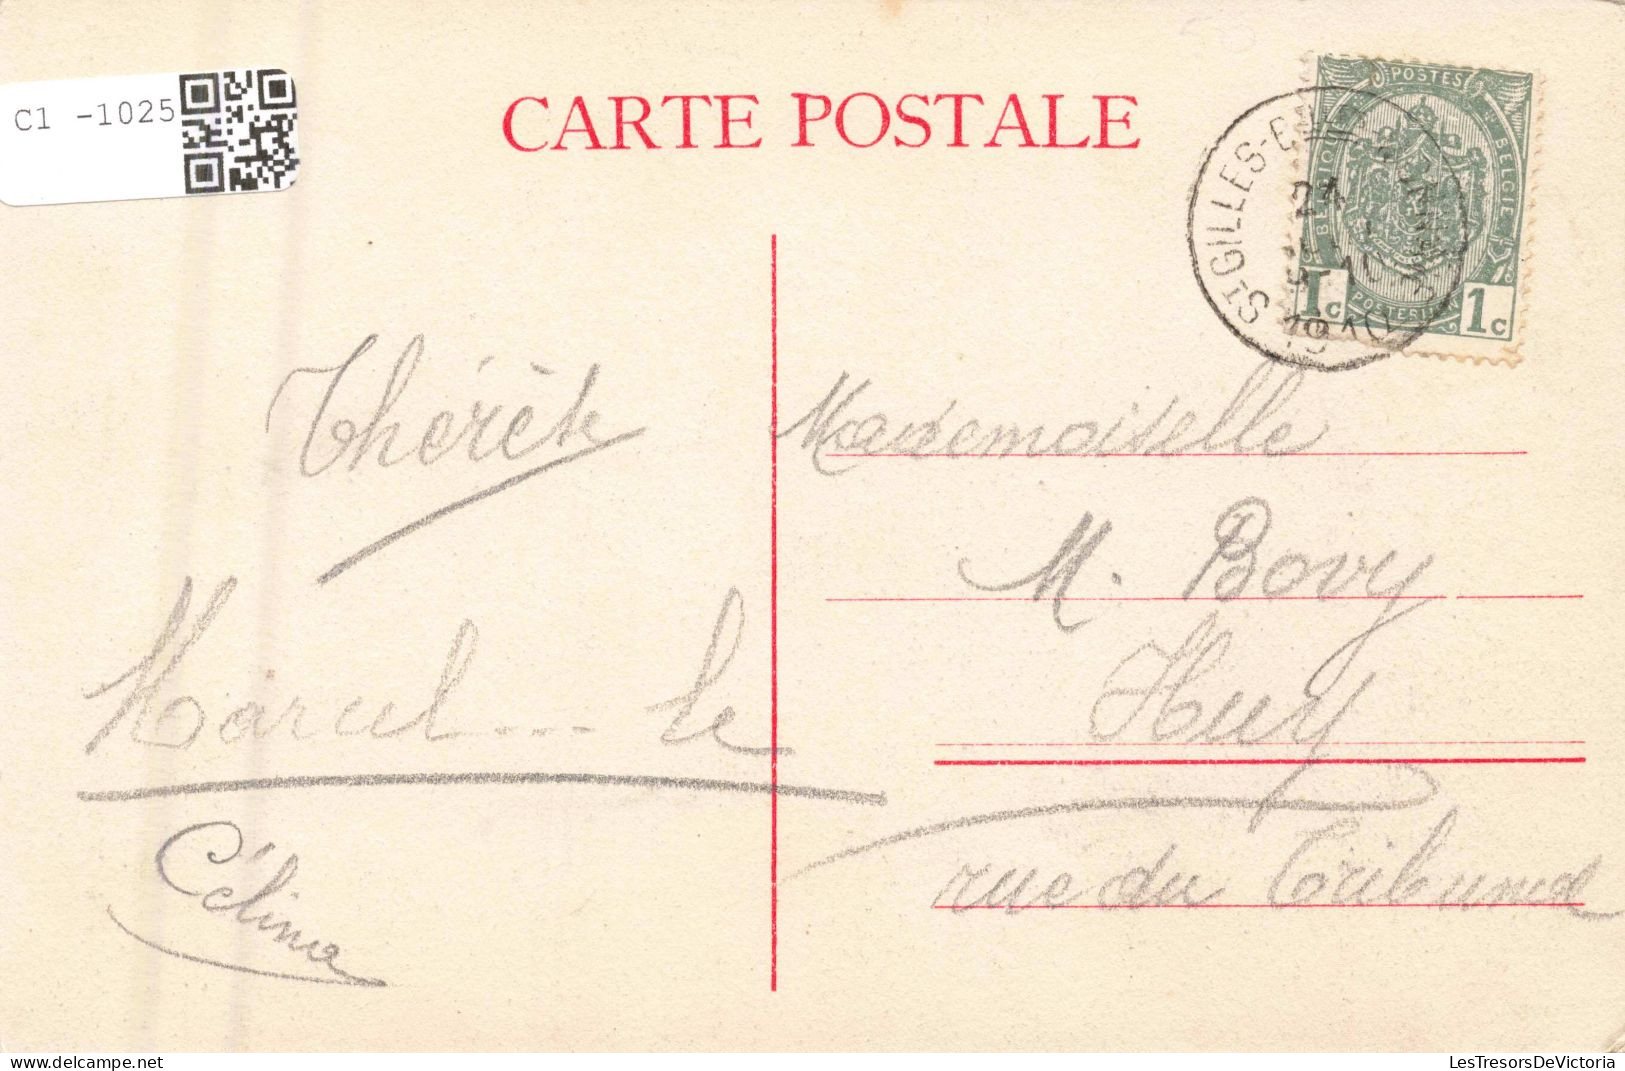 C1 -1025
CARTE POSTALE
POSTES
BELGIQUE
BELGIE
POSTERIJEN
1c
1c
ST GILLES-
1910
Thérèse
Marcel --- le
Célina
Mademoiselle
M. Bovy
Huy
rue du Tribunal
LesTresorsDeVictoria